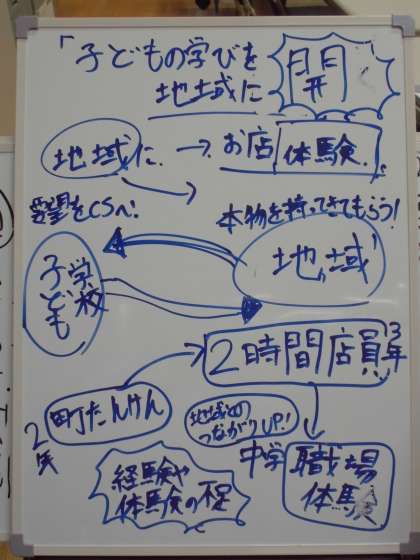 「子どもの学びを
地域に 開く
地域に → お店体験
要望をCSへ!
本物を持ってきてもらう!
子ども 学校
地域
2時間店員 3年
町たんけん
2年
地域との
つながりUP!
中学 職場
体験
経験や
体験の不足